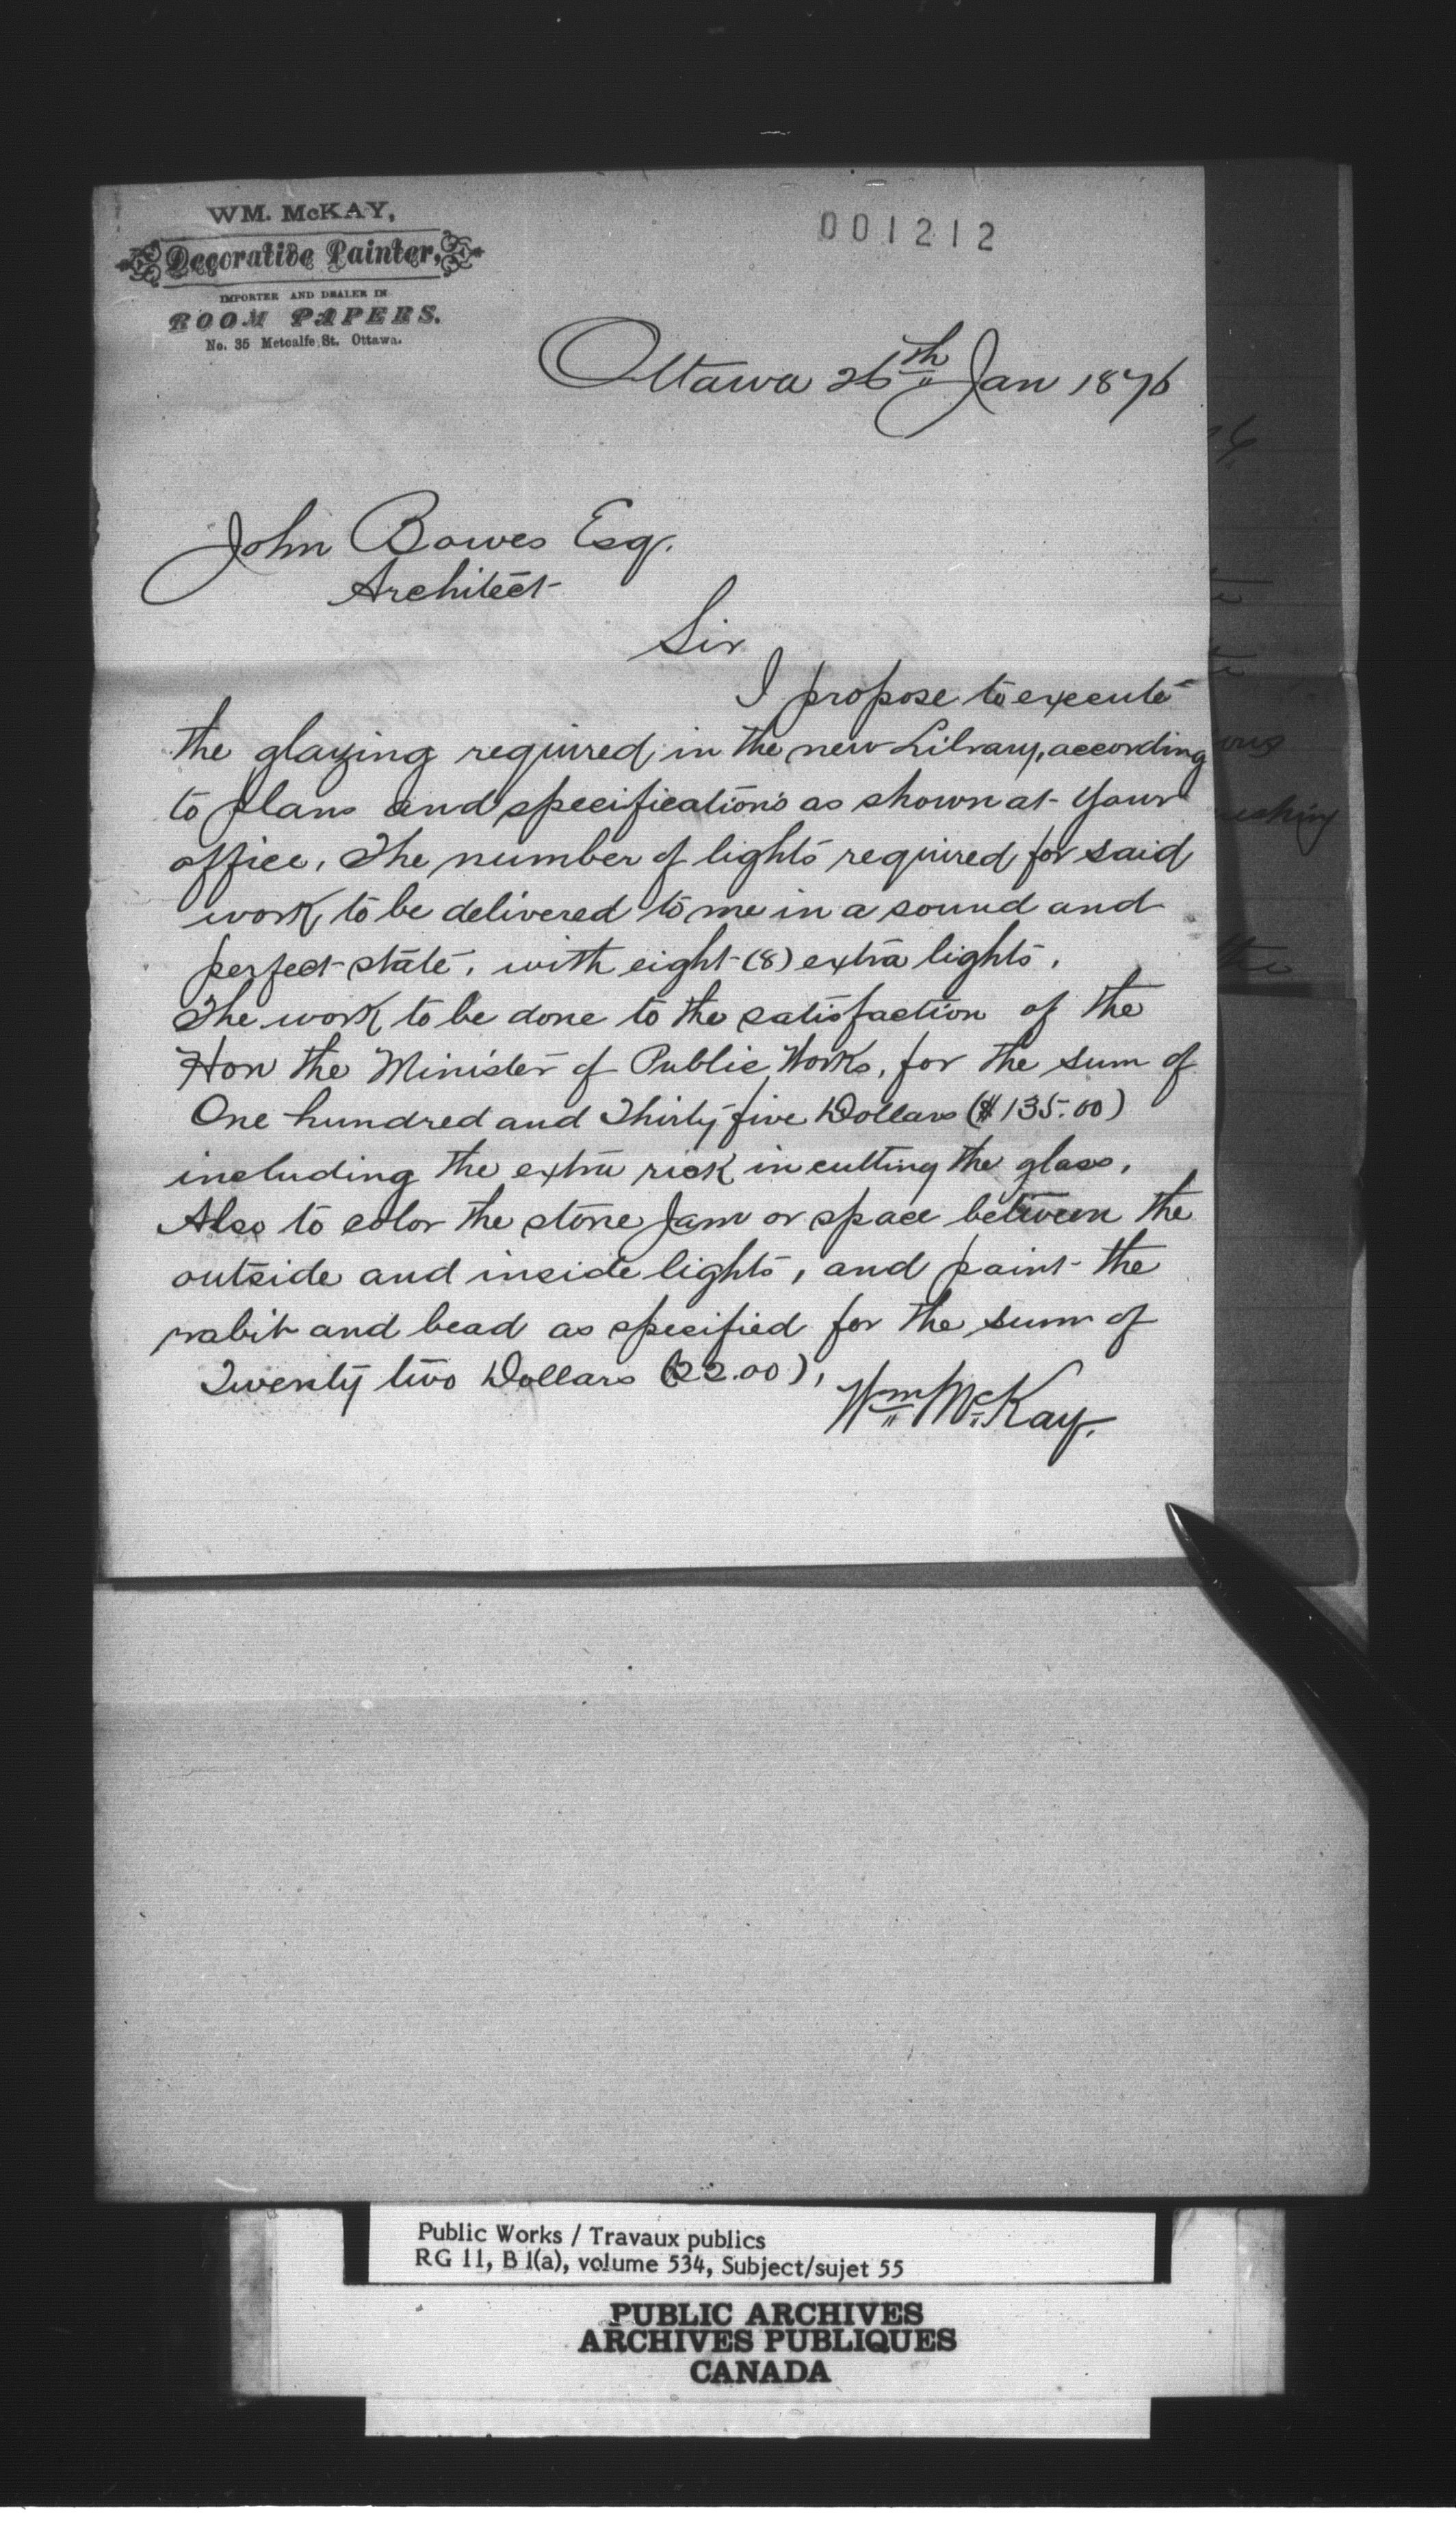 WM. McKAY,
Decorative Painter,
IMPORTER AND DEALER IN
ROOM PAPERS.
No. 35 Metcalfe St. Ottawa.
001212
Ottawa 26th Jan 1876
John Bowes Esq.
Architect
Sir
I propose to execute
the glazing required in the new Library, according
to plans and specifications as shown at your
office. The number of lights required for said
work to be delivered to me in a sound and
perfect state, with eight (8) extra lights.
The work to be done to the satisfaction of the
Hon the Minister of Public Works, for the sum of
One hundred and Thirty five Dollars ($135.00)
including the extra risk in cutting the glass.
Also to color the stone Jam or space between the
outside and inside lights, and paint the
rabit and bead as specified for the sum of
Twenty two Dollars (22.00),
Wm McKay.
Public Works / Travaux publics
RG 11, B 1(a), volume 534, Subject/sujet 55
PUBLIC ARCHIVES
ARCHIVES PUBLIQUES
CANADA